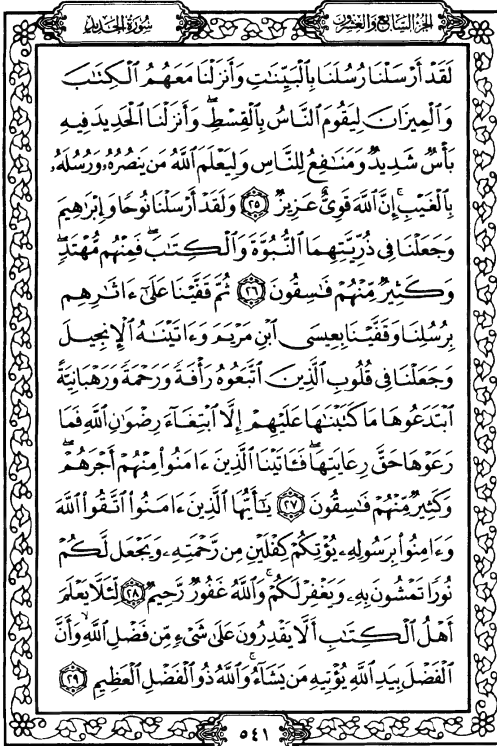 الجزء السابع والعشرون
سورة الحديد
لَقَدْ أَرْسَلْنَا رُسُلَنَا بِالْبَيِّنَٰتِ وَأَنزَلْنَا مَعَهُمُ الْكِتَٰبَ
وَالْمِيزَانَ لِيَقُومَ النَّاسُ بِالْقِسْطِ ۖ وَأَنزَلْنَا الْحَدِيدَ فِيهِ
بَأْسٌ شَدِيدٌ وَمَنَٰفِعُ لِلنَّاسِ وَلِيَعْلَمَ اللَّهُ مَن يَنصُرُهُۥ وَرُسُلَهُۥ
بِالْغَيْبِ ۚ إِنَّ اللَّهَ قَوِيٌّ عَزِيزٌ ﴿٢٥﴾ وَلَقَدْ أَرْسَلْنَا نُوحًا وَإِبْرَٰهِيمَ
وَجَعَلْنَا فِي ذُرِّيَّتِهِمَا النُّبُوَّةَ وَالْكِتَٰبَ ۖ فَمِنْهُم مُّهْتَدٍ ۖ
وَكَثِيرٌ مِّنْهُمْ فَٰسِقُونَ ﴿٢٦﴾ ثُمَّ قَفَّيْنَا عَلَىٰٓ ءَاثَٰرِهِم
بِرُسُلِنَا وَقَفَّيْنَا بِعِيسَى ابْنِ مَرْيَمَ وَءَاتَيْنَٰهُ الْإِنجِيلَ
وَجَعَلْنَا فِي قُلُوبِ الَّذِينَ اتَّبَعُوهُ رَأْفَةً وَرَحْمَةً وَرَهْبَانِيَّةً
ابْتَدَعُوهَا مَا كَتَبْنَٰهَا عَلَيْهِمْ إِلَّا ابْتِغَآءَ رِضْوَٰنِ اللَّهِ فَمَا
رَعَوْهَا حَقَّ رِعَايَتِهَا ۖ فَـَٔاتَيْنَا الَّذِينَ ءَامَنُوا مِنْهُمْ أَجْرَهُمْ ۖ
وَكَثِيرٌ مِّنْهُمْ فَٰسِقُونَ ﴿٢٧﴾ يَٰٓأَيُّهَا الَّذِينَ ءَامَنُوا اتَّقُوا اللَّهَ
وَءَامِنُوا بِرَسُولِهِۦ يُؤْتِكُمْ كِفْلَيْنِ مِن رَّحْمَتِهِۦ وَيَجْعَل لَّكُمْ
نُورًا تَمْشُونَ بِهِۦ وَيَغْفِرْ لَكُمْ ۚ وَاللَّهُ غَفُورٌ رَّحِيمٌ ﴿٢٨﴾ لِّئَلَّا يَعْلَمَ
أَهْلُ الْكِتَٰبِ أَلَّا يَقْدِرُونَ عَلَىٰ شَيْءٍ مِّن فَضْلِ اللَّهِ ۙ وَأَنَّ
الْفَضْلَ بِيَدِ اللَّهِ يُؤْتِيهِ مَن يَشَآءُ ۚ وَاللَّهُ ذُو الْفَضْلِ الْعَظِيمِ ﴿٢٩﴾
٥٤١